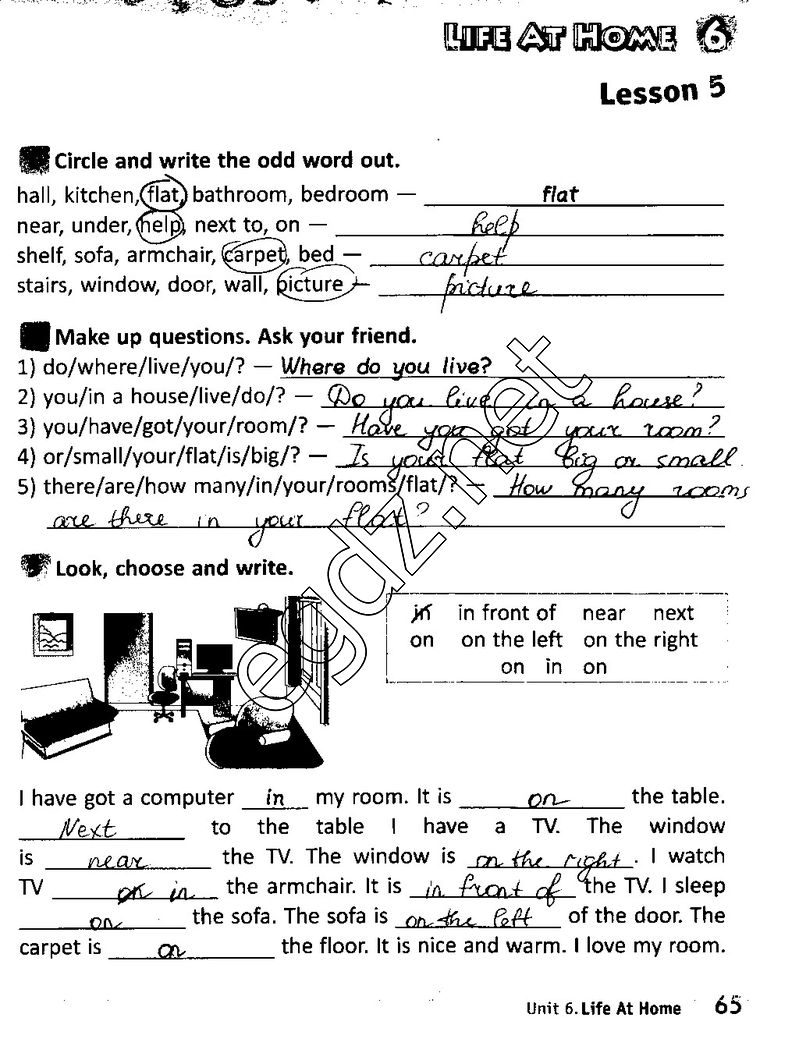 LIFE AT HOME 6
Lesson 5
Circle and write the odd word out.
hall, kitchen, flat, bathroom, bedroom — flat
near, under, help, next to, on — help
shelf, sofa, armchair, carpet, bed — carpet
stairs, window, door, wall, picture — picture
Make up questions. Ask your friend.
1) do/where/live/you/? — Where do you live?
2) you/in a house/live/do/? — Do you live in a house?
3) you/have/got/your/room/? — Have you got your room?
4) or/small/your/flat/is/big/? — Is your flat big or small.
5) there/are/how many/in/your/rooms/flat/? — How many rooms
are there in your flat?
Look, choose and write.
in in front of near next
on on the left on the right
on in on
I have got a computer in my room. It is on the table.
Next to the table I have a TV. The window
is near the TV. The window is on the right. I watch
TV in the armchair. It is in front of the TV. I sleep
on the sofa. The sofa is on the left of the door. The
carpet is on the floor. It is nice and warm. I love my room.
Unit 6. Life At Home 65
egdz.net